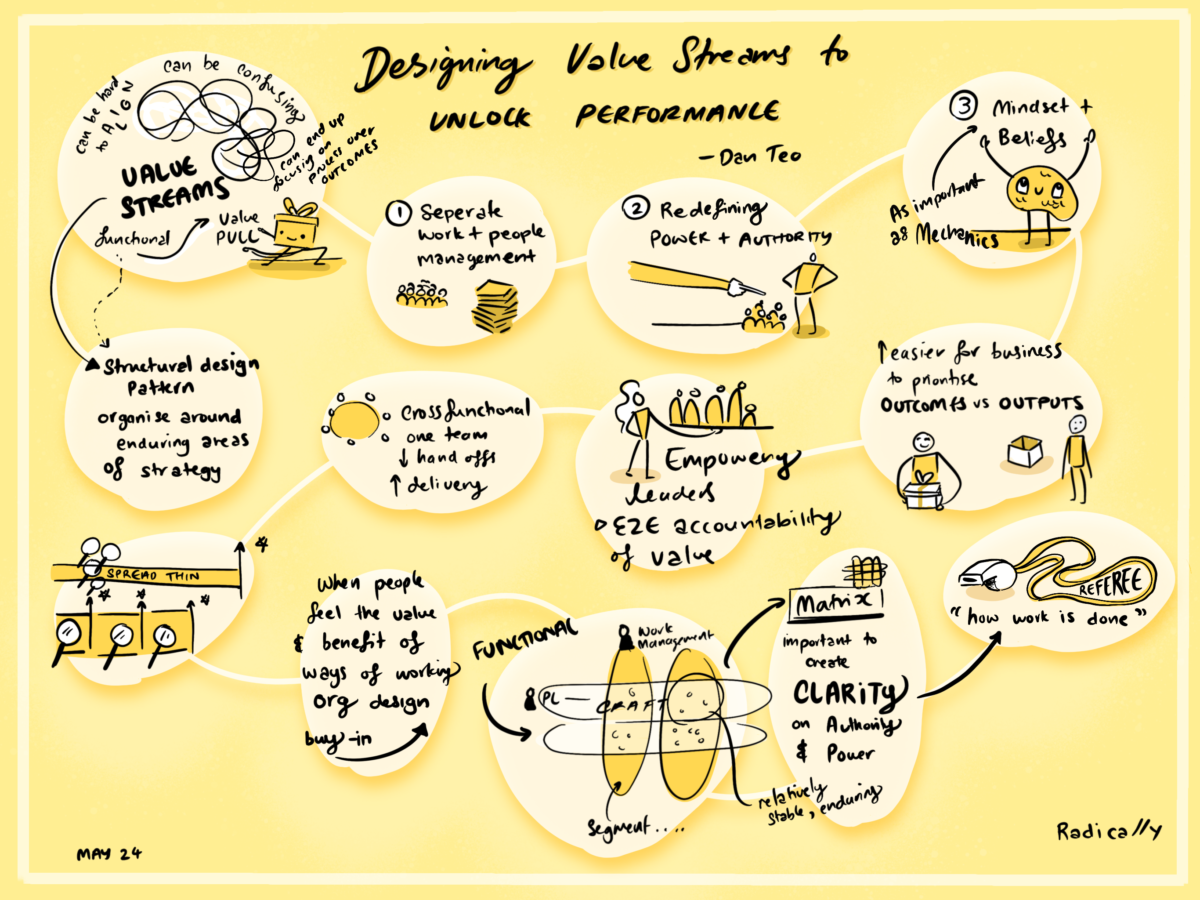 Designing Value Streams to
UNLOCK PERFORMANCE
- Dan Teo
can be hard
to ALIGN
can be confusing
can end up
focusing on
process over
OUTCOMES
VALUE
STREAMS
functional
Value
PULL
1 Seperate
work + people
management
2 Redefining
POWER + AUTHORITY
3 Mindset +
Beliefs
As important
as Mechanics
Structural design
Pattern
organise around
enduring areas
of strategy
Cross functional
one team
↓ hand offs
↑ delivery
Empowery
leaders
E2E accountability
of value
↑ easier for business
to prioritise
OUTCOMES vs OUTPUTS
SPREAD THIN
When people
feel the value
& benefit of
ways of working
org design
buy-in
FUNCTIONAL
Work
Management
PL
CRAFT
Segment....
relatively
stable, enduring
Matrix
important to
create
CLARITY
on Authority
& Power
REFEREE
"how work is done"
MAY 24
Radically